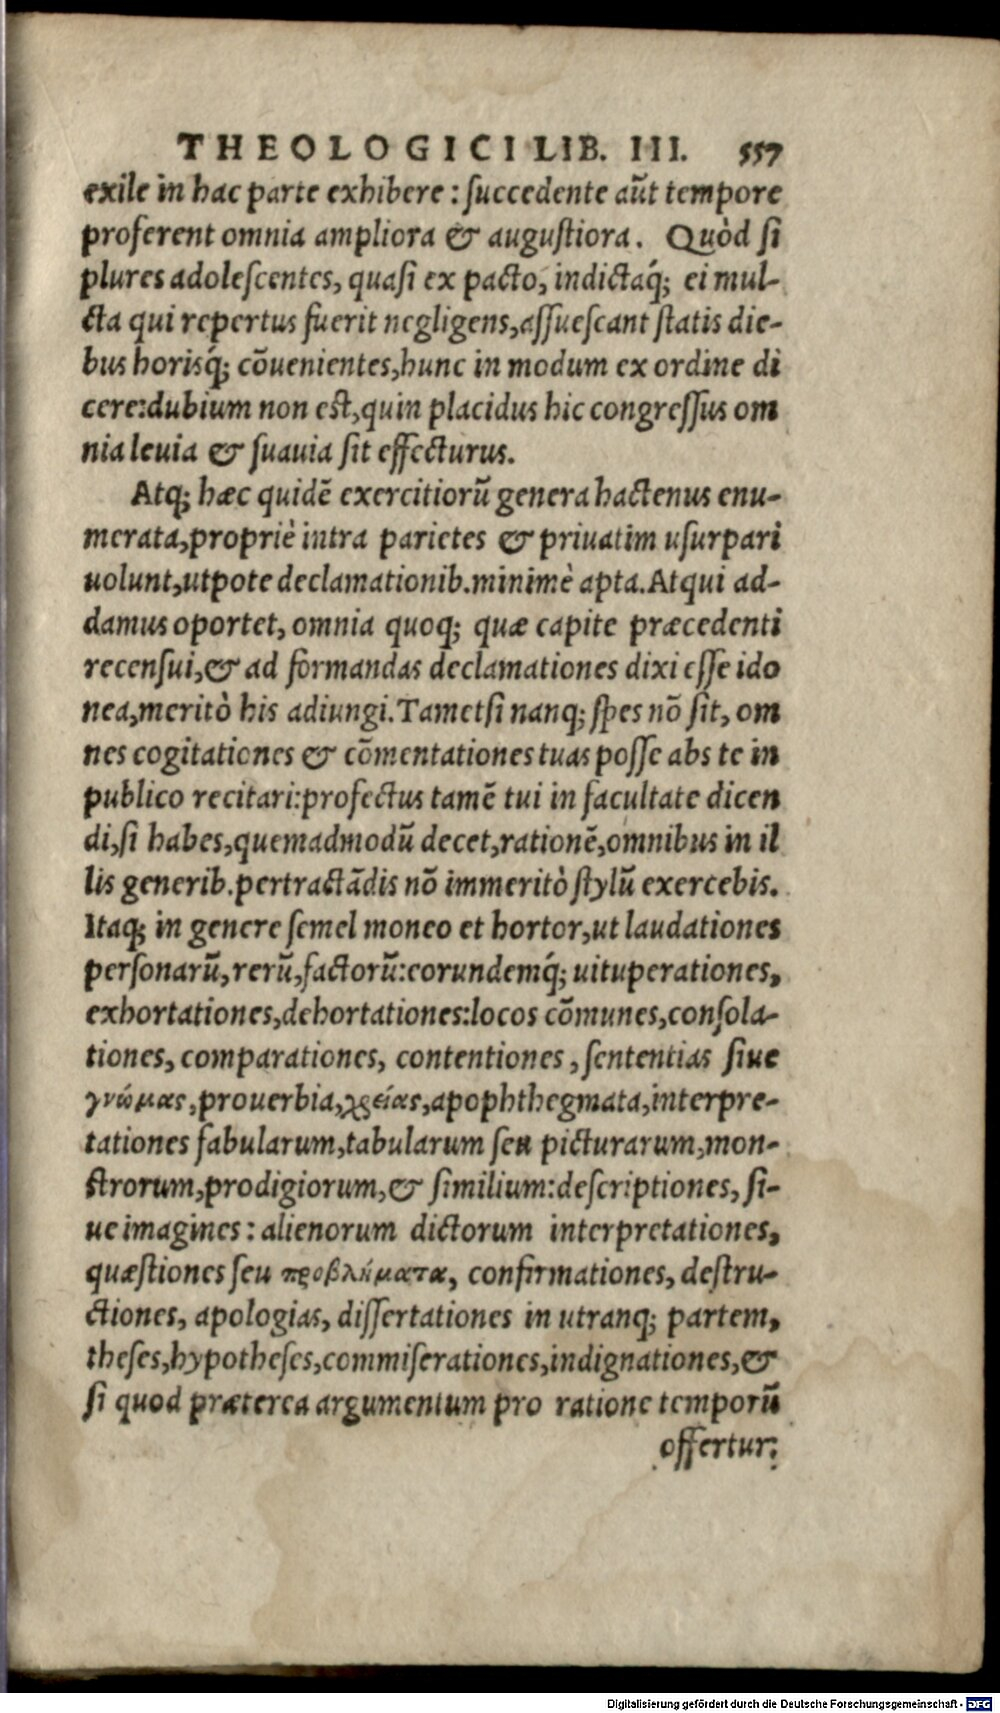 THEOLOGICI LIB. III. 557
exile in hac parte exhibere : succedente aũt tempore
proferent omnia ampliora & augustiora. Quòd si
plures adolescentes, quasi ex pacto, indictaq́; ei mul-
cta qui repertus fuerit negligens, assuescant statis die-
bus horisq́; cõuenientes, hunc in modum ex ordine di
cere: dubium non est, quin placidus hic congressus om
nia leuia & suauia sit effecturus.
Atq; hæc quidẽ exercitiorũ genera hactenus enu-
merata, propriè intra parietes & priuatim usurpari
uolunt, utpote declamationib. minimè apta. Atqui ad-
damus oportet, omnia quoq; quæ capite præcedenti
recensui, & ad formandas declamationes dixi esse ido
nea, meritò his adiungi. Tametsi nanq; spes nõ sit, om
nes cogitationes & cõmentationes tuas posse abs te in
publico recitari: profectus tamẽ tui in facultate dicen
di, si habes, quemadmodũ decet, rationẽ, omnibus in il
lis generib. pertractãdis nõ immeritò stylũ exercebis.
Itaq; in genere semel moneo et hortor, ut laudationes
personarũ, rerũ, factorũ: eorundemq́; uituperationes,
exhortationes, dehortationes: locos cõmunes, consola-
tiones, comparationes, contentiones, sententias siue
γνώμας, prouerbia, χρείας, apophthegmata, interpre-
tationes fabularum, tabularum seu picturarum, mon-
strorum, prodigiorum, & similium: descriptiones, si-
ue imagines : alienorum dictorum interpretationes,
quæstiones seu προβλήματα, confirmationes, destru-
ctiones, apologias, dissertationes in utranq; partem,
theses, hypotheses, commiserationes, indignationes, &
si quod præterea argumentum pro ratione temporũ
offertur:
Digitalisierung gefördert durch die Deutsche Forschungsgemeinschaft - DFG